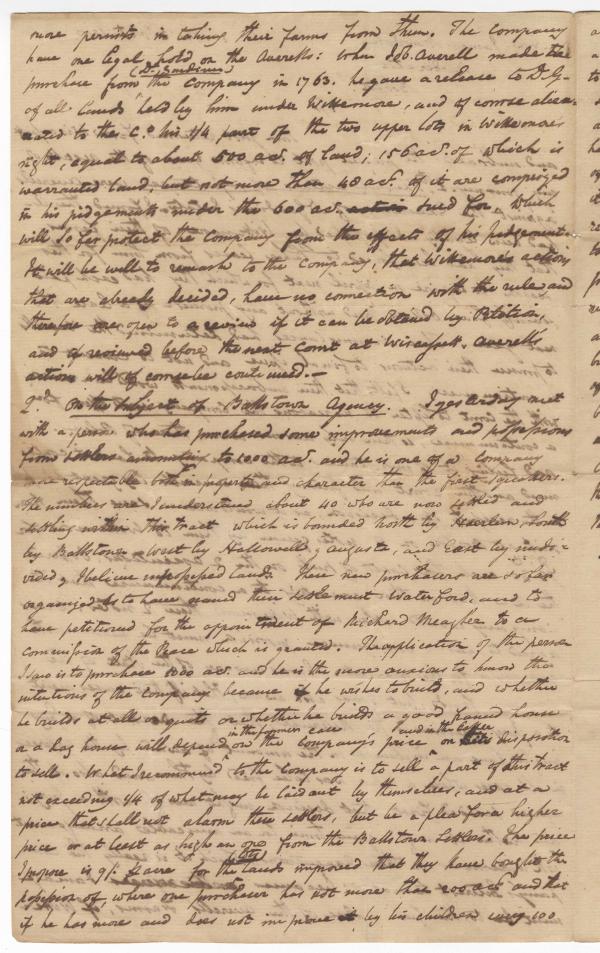 more permits in taking their farms from them. The Company
have one legal hold on the Averells: when Job Averell made the
(Dr. Gardiner)
purchase from the Company in 1763. he gave a release to Dr. G-
of all lands held by him under Wittemore, and of course
to the Co. his 1/4 part of the two upper lots in Wittemore's
right, equal to about 500 acs. of land, 156 acs. of which is
warranted land, but not more than 48 acs. of it are comprized
in his judgements under the 600 acs. sued for, which
will so far protect the Company from the effects of his judgement.
It will be well to remark to the Company, that Wittemore's actions
that are already decided, have no connection with the rule and
therefore are open to a review if it can be obtained by Petition,
and if reviewed before the next Court at Wiscasset. Averell's
action will of course be continued.—
2nd. On the subject of Ballstown Agency. I yesterday met
with a person who has purchased some improvements and possessions
from settlers amounting to 1000 acs. and he is one of a company
more respectable both in property and character than the first squatters.
The numbers are I understand about 40 who are now settled and
settling within this tract which is bounded North by Haerlem, South
by Ballstown West by Hallowell & Augusta, and East by undi=
vided & I believe unpossessed lands. These new purchasers are so far
organized as to have named their settlement Waterford, and to
have petitioned for the appointment of Richard Meagher to a
commission of the Peace which is granted. The application of the person
I saw is to purchase 1000 acs. and he is the more anxious to know the
intentions of the Company because he wishes to build, and whether
he builds at all or quits or whether he builds a good framed house
in the former case and in the latter
or a log house will depend on the Company's price on disposition
to sell. What I recommend to the Company is to sell a part of this tract
not exceeding 1/4 of what may be laid out by themselves, and at a
price that shall not alarm these settlers, but be a plea for a higher
price or at least as high an one from the Ballstown settlers. The price
I propose is 9/. acre for the lands improved that they have bought the
possession of, where one purchaser has not more than 200 acs. and that
if he has more and does not improve it by his children every 100